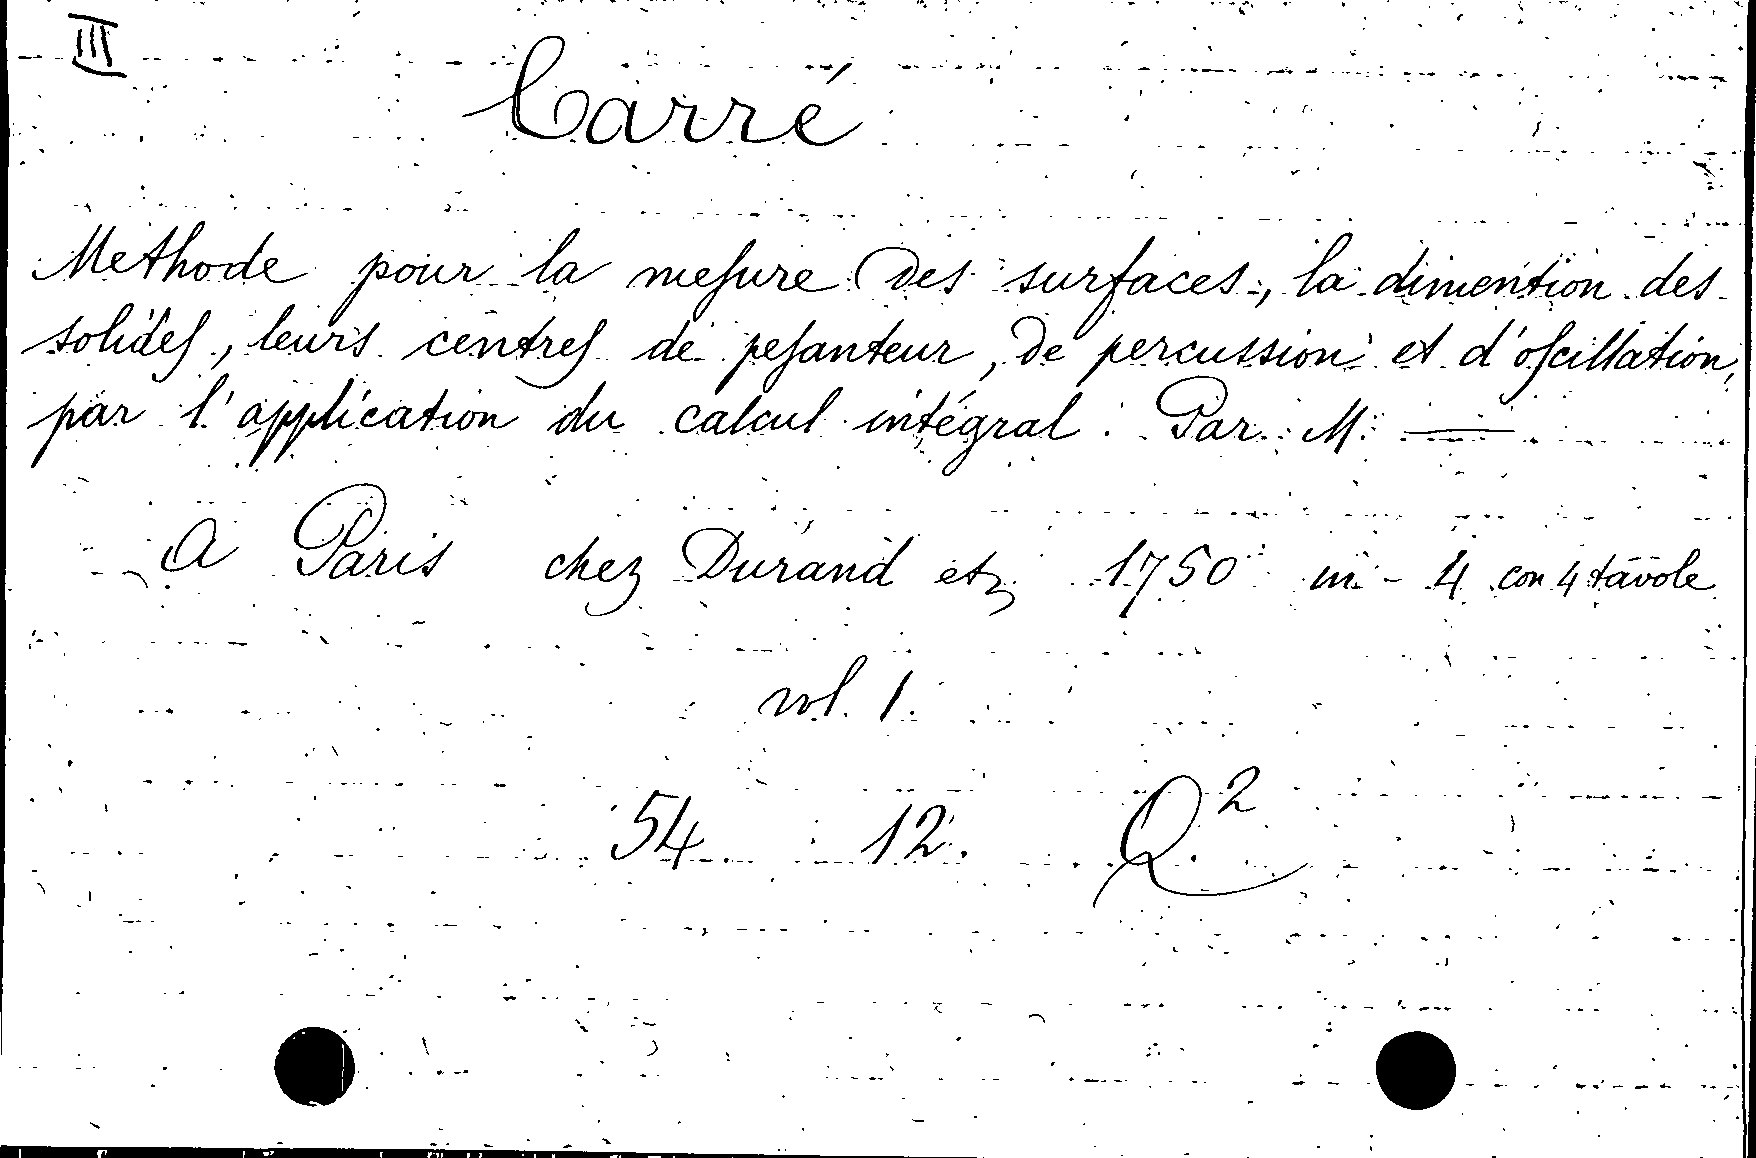 III
Carré
Methode pour la meſure des surfaces, la dimention des
solideſ, leurs centreſ de peſanteur, de percussion et d'oſcillation,
par l'application du calcul intégral. Par M. —
A Paris chez Durand etz 1750 in-4 con 4 tavole
vol. 1.
54 12. Q.2